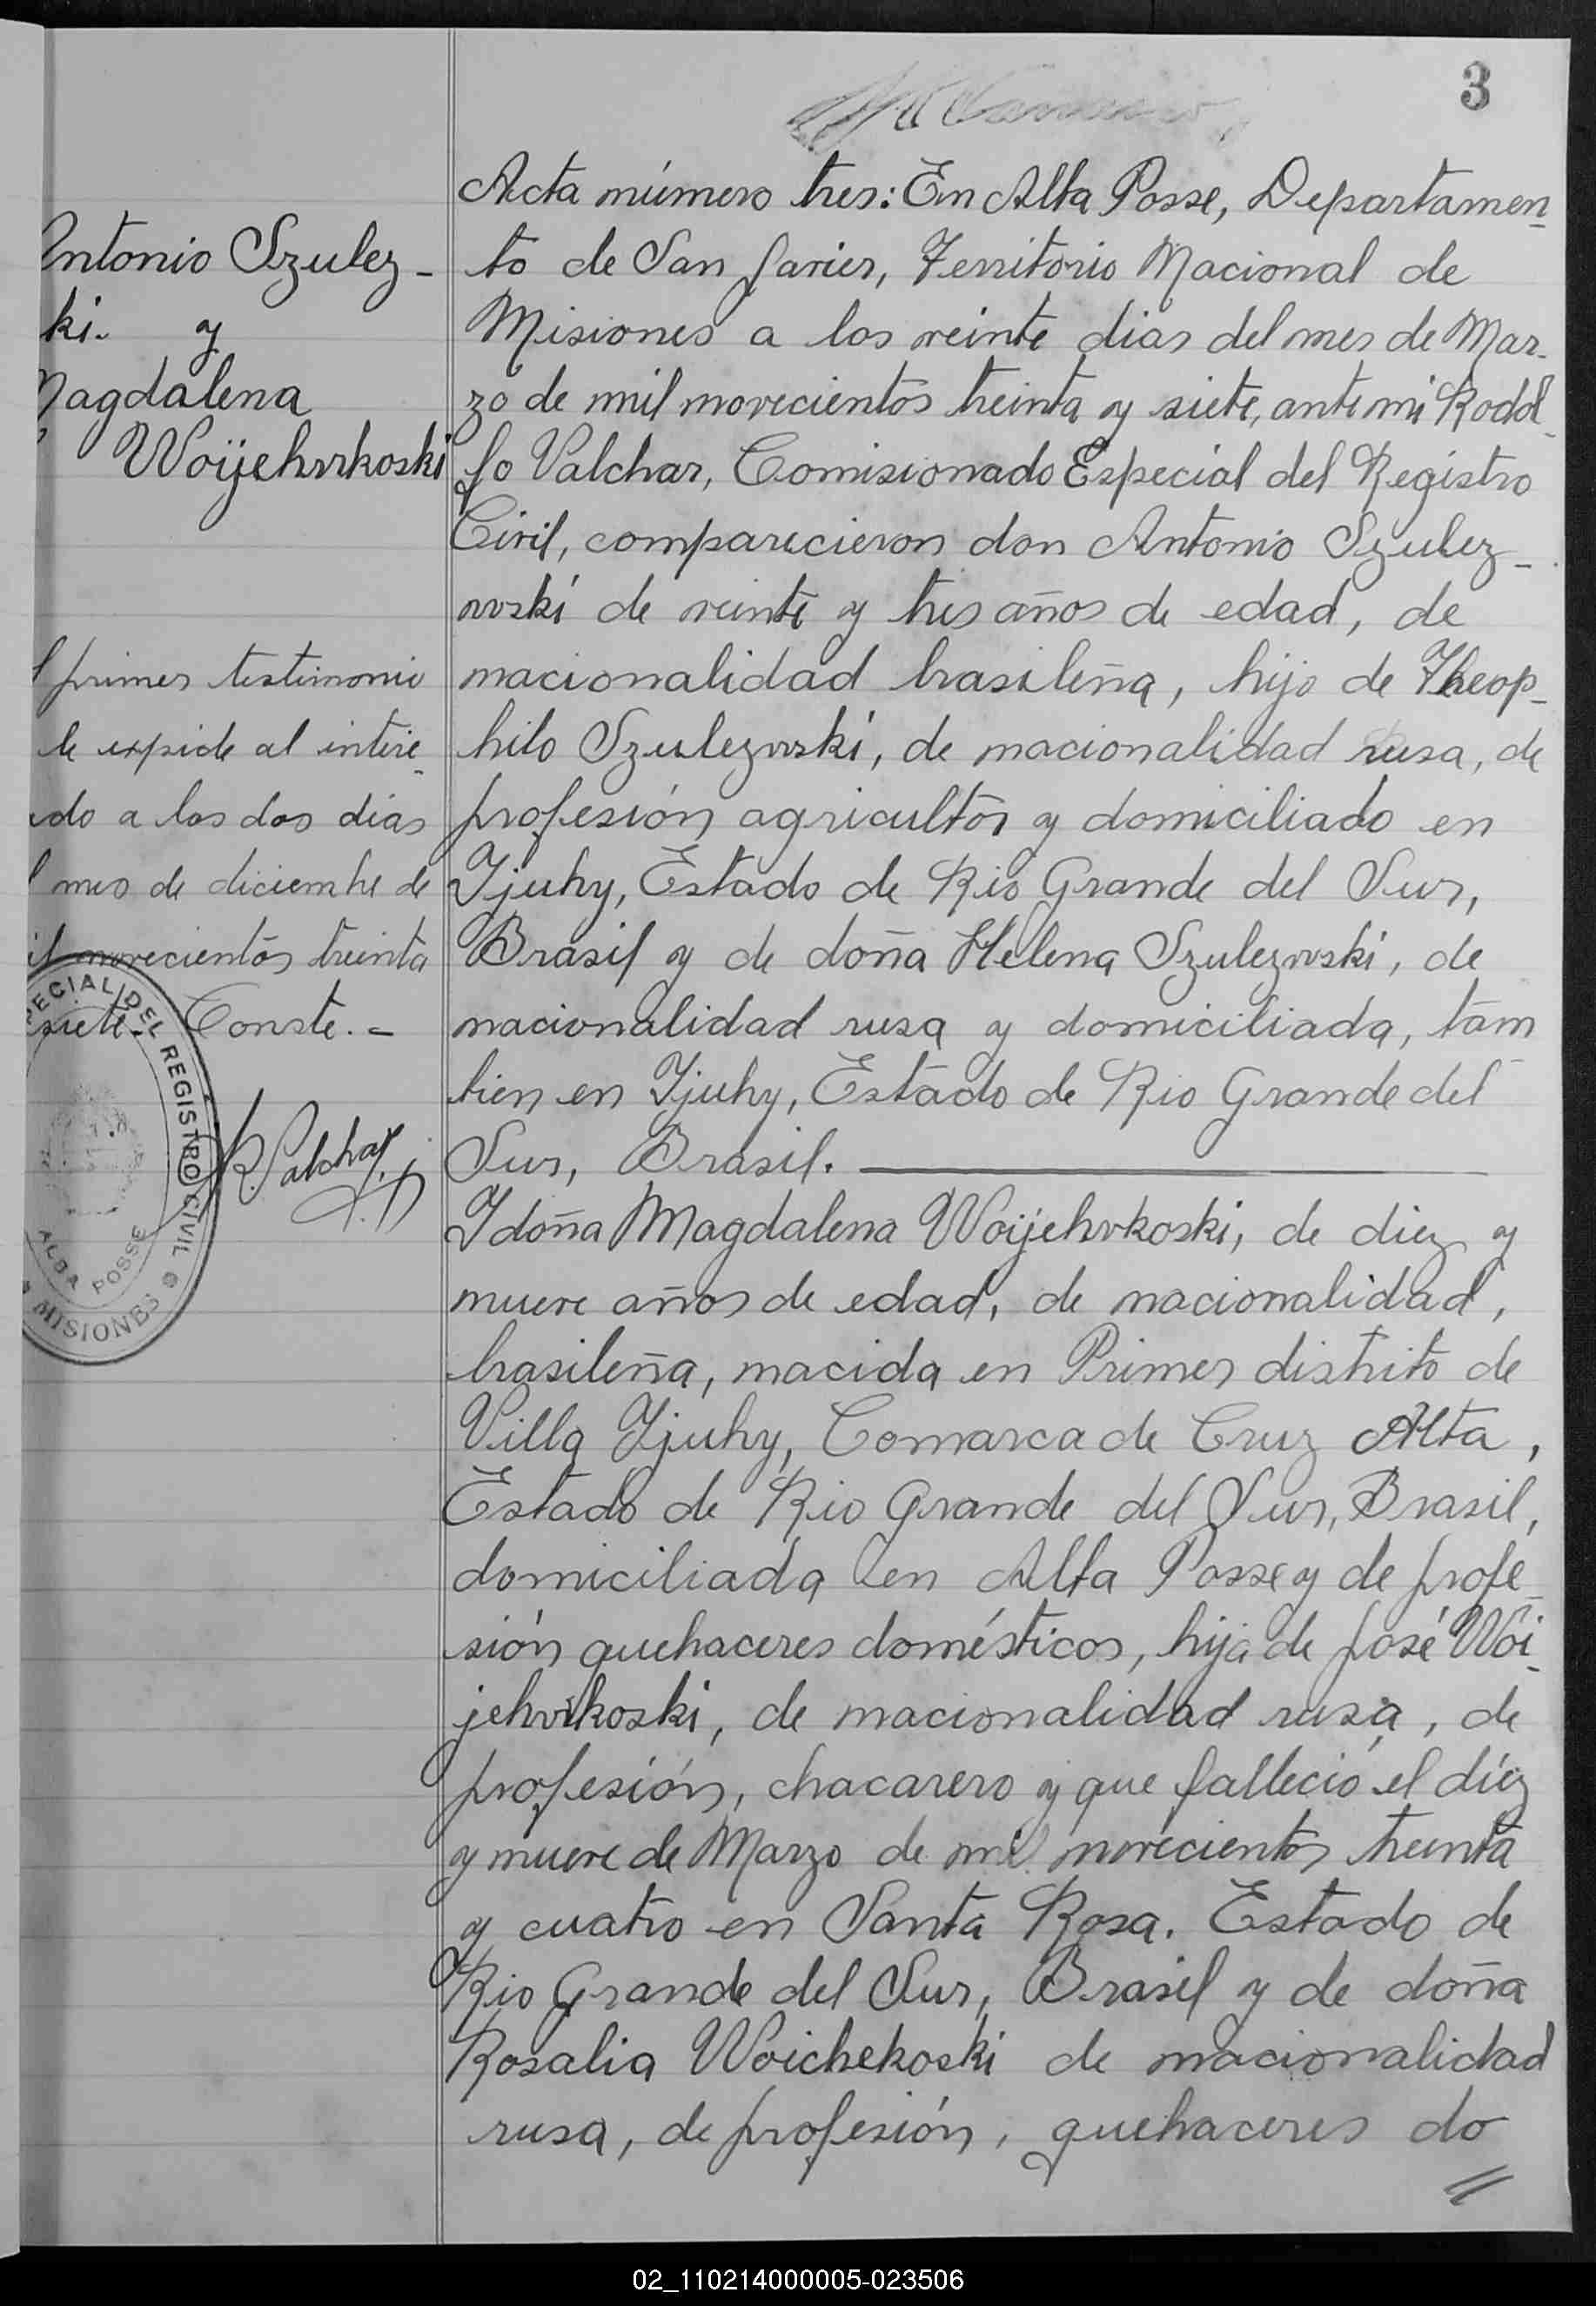 3
Acta número tres: En Alba Posse, Departamen-
to de San Javier, Territorio Nacional de
Misiones a los veinte dias del mes de Mar-
zo de mil novecientos treinta y siete, ante mi Rodol-
fo Valchar, Comisionado Especial del Registro
Civil, comparecieron don Antonio Szulez-
wski de veinte y tres años de edad, de
nacionalidad brasileña, hijo de Theop-
hilo Szulezwski, de nacionalidad rusa, de
profesión agricultor y domiciliado en
Ijuhy, Estado de Rio Grande del Sur,
Brasil y de doña Helena Szulezwski, de
nacionalidad rusa y domiciliada, tam
bien en Ijuhy, Estado de Rio Grande del
Sur, Brasil.
I doña Magdalena Woijehvkoski, de diez y
nueve años de edad, de nacionalidad,
brasileña, nacida en Primer distrito de
Villa Ijuhy, Comarca de Cruz Alta,
Estado de Rio Grande del Sur, Brasil,
domiciliada en Alba Posse y de profe-
sión quehaceres domésticos, hija de José Woi-
jehvkoski, de nacionalidad rusa, de
profesión, chacarero y que falleció el diez
y nueve de Marzo de mil novecientos treinta
y cuatro en Santa Rosa. Estado de
Rio Grande del Sur, Brasil y de doña
Rosalia Woichekoski de nacionalidad
rusa, de profesión, quehaceres do
=
Antonio Szulez-
ki. y
Magdalena
Woijehvrkoski
l primer testimonio
le expide al intere-
ado a los dos dias
l mes de diciembre de
il novecientos treinta
siete. Conste. -
R. Valchar
ECIAL DEL REGISTRO CIVIL
ALBA POSSE
MISIONES
02_110214000005-023506